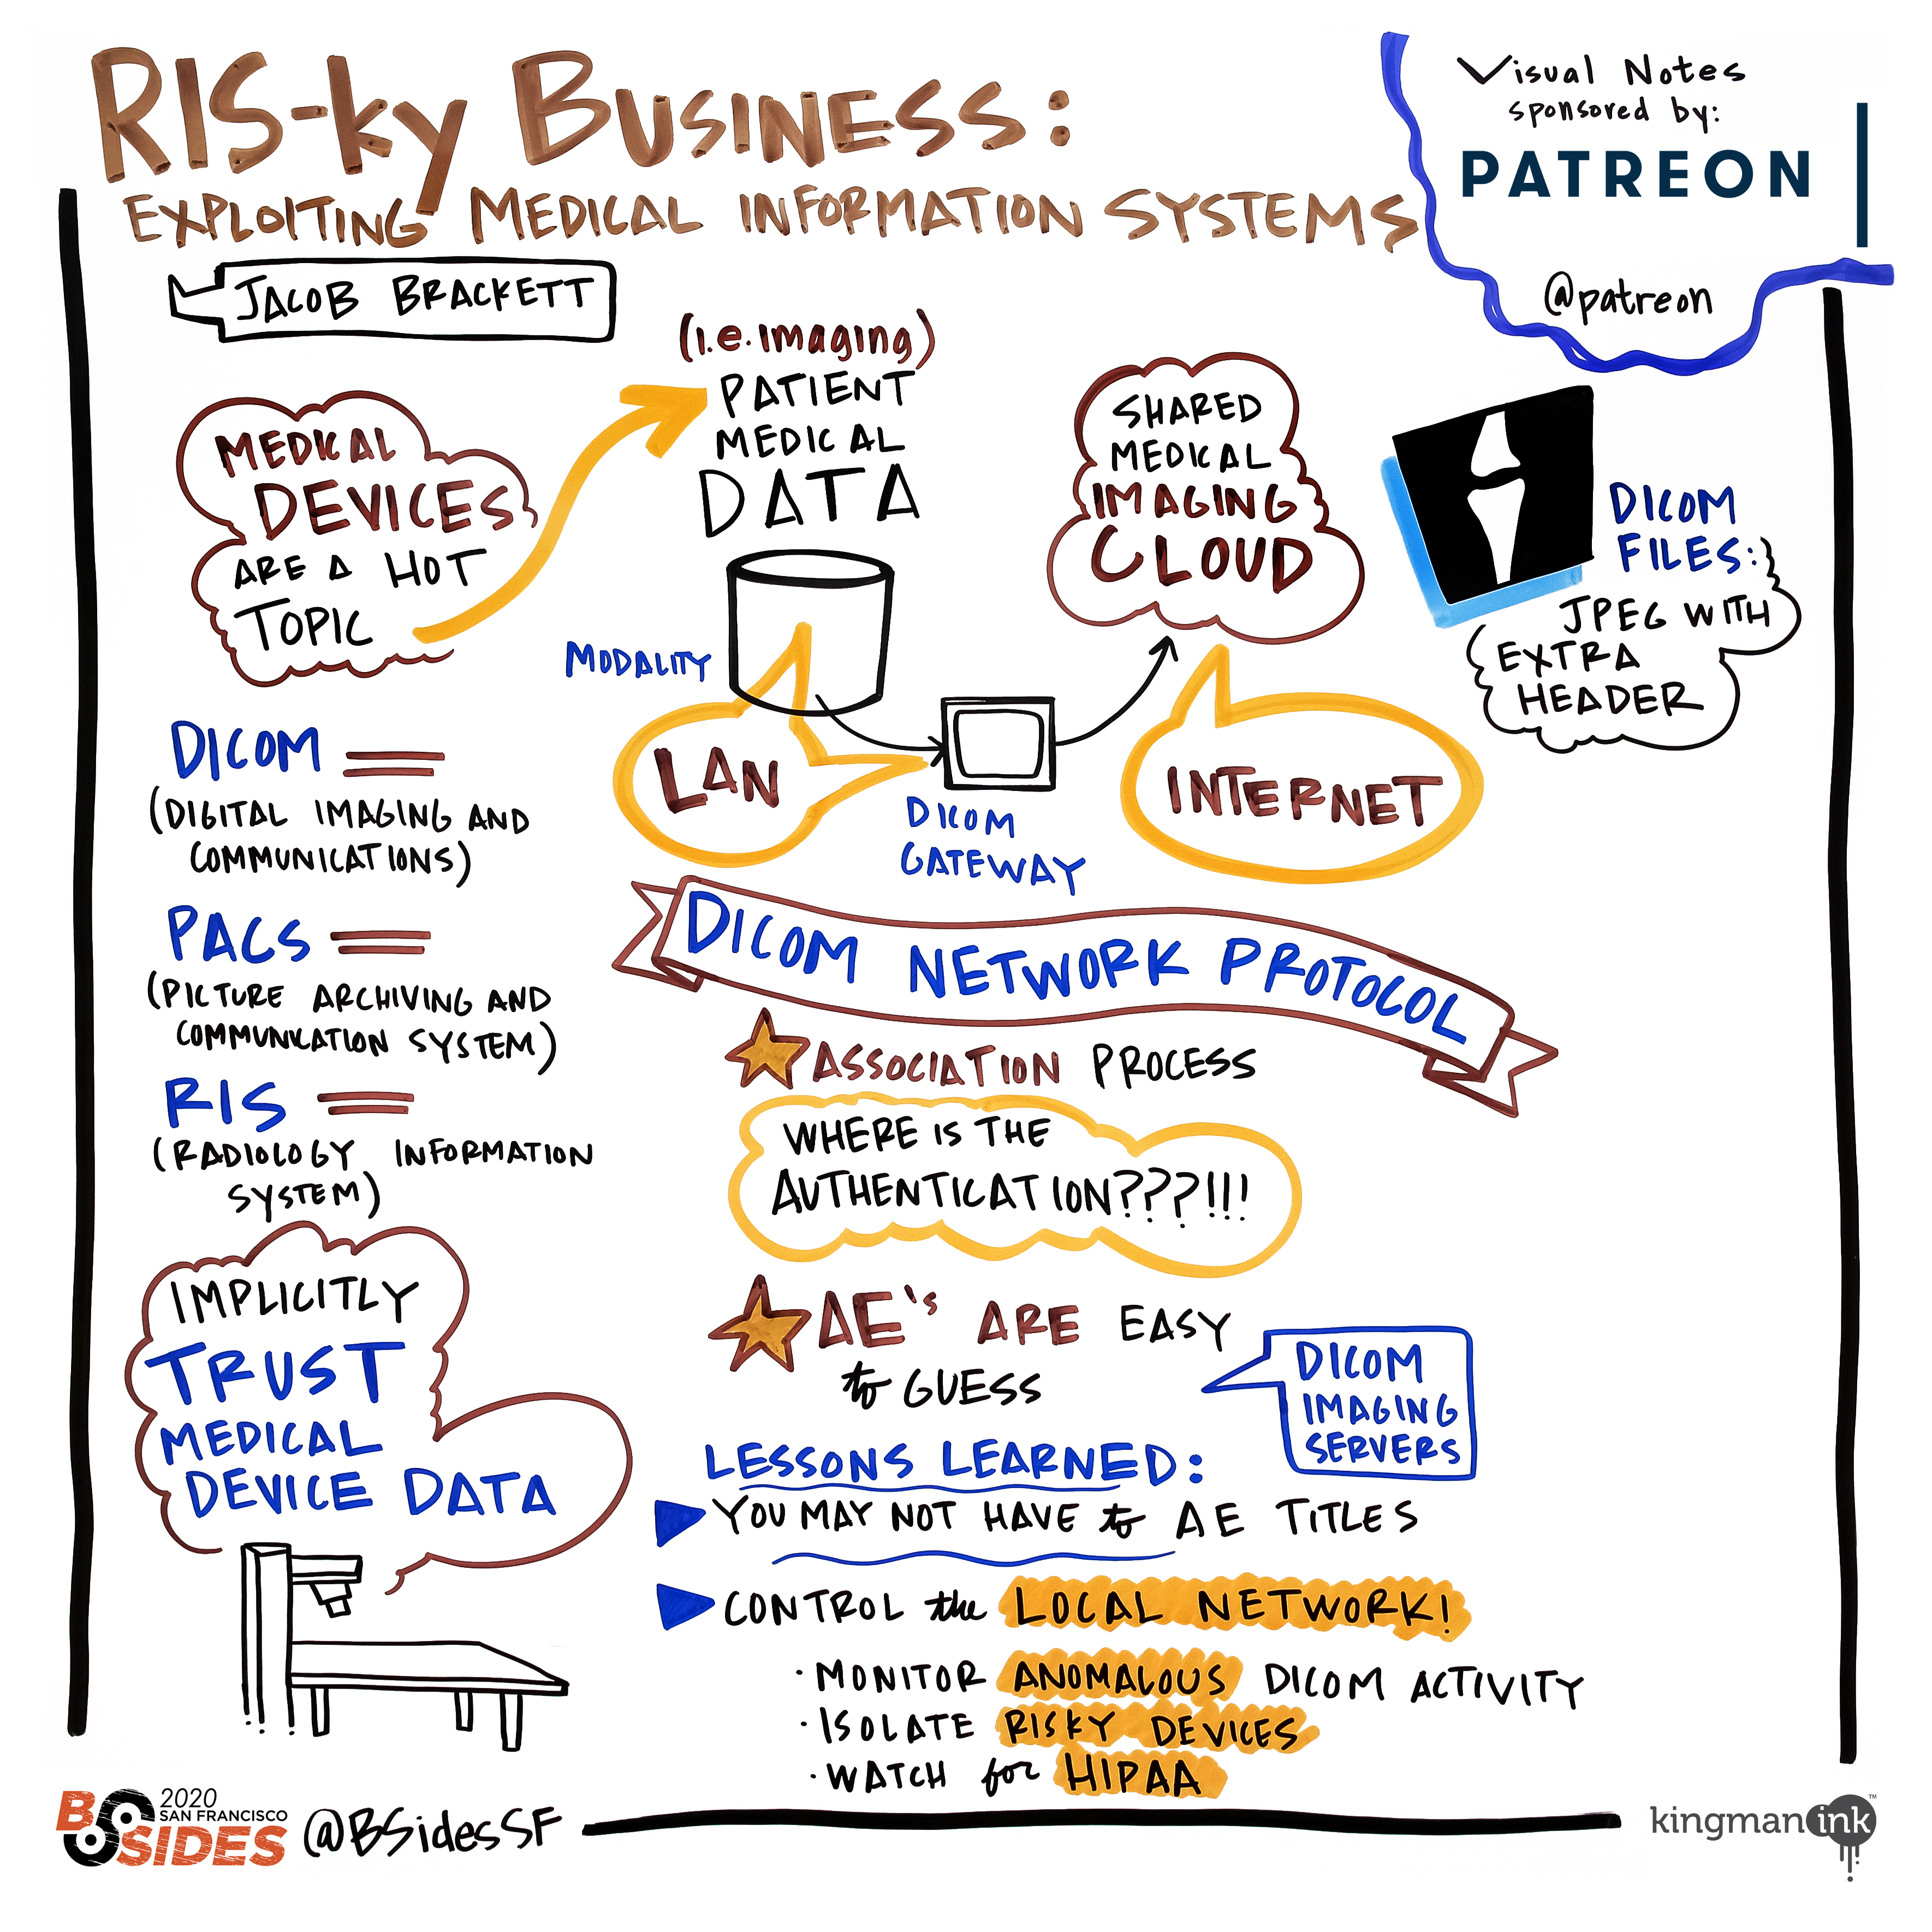 RIS-ky Business:
EXPLOITING MEDICAL INFORMATION SYSTEMS
JACOB BRACKETT
Visual Notes
sponsored by:
PATREON
@patreon
MEDICAL
DEVICES
ARE A HOT
TOPIC
(i.e. imaging)
PATIENT
MEDICAL
DATA
SHARED
MEDICAL
IMAGING
CLOUD
DICOM
FILES:
JPEG WITH
EXTRA
HEADER
MODALITY
LAN
DICOM
GATEWAY
INTERNET
DICOM
(DIGITAL IMAGING AND
COMMUNICATIONS)
PACS
(PICTURE ARCHIVING AND
COMMUNICATION SYSTEM)
RIS
(RADIOLOGY INFORMATION
SYSTEM)
IMPLICITLY
TRUST
MEDICAL
DEVICE DATA
DICOM NETWORK PROTOCOL
ASSOCIATION PROCESS
WHERE IS THE
AUTHENTICATION???!!!
AE's ARE EASY
to GUESS
DICOM
IMAGING
SERVERS
LESSONS LEARNED:
YOU MAY NOT HAVE to AE TITLES
CONTROL the LOCAL NETWORK!
· MONITOR ANOMALOUS DICOM ACTIVITY
· ISOLATE RISKY DEVICES
· WATCH for HIPAA
BSIDES
2020
SAN FRANCISCO
@BSidesSF
kingman ink™